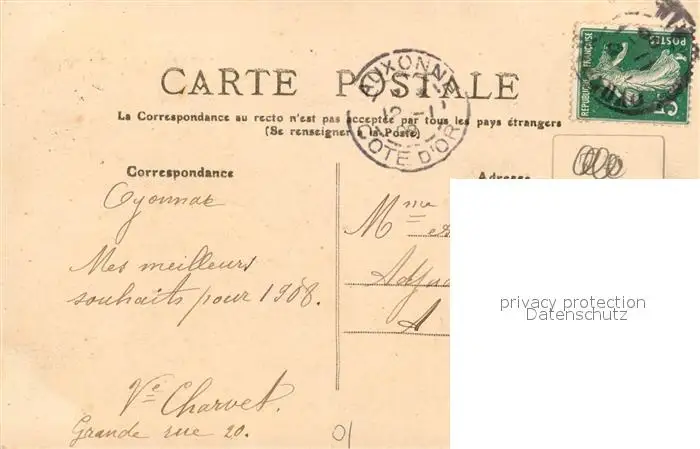 CARTE POSTALE
La Correspondance au recto n'est pas acceptée par tous les pays étrangers
(Se renseigner à la Poste)
AUXONNE
COTE D'OR
POSTES
REPUBLIQUE FRANÇAISE
Correspondance
Adresse
Oyonnax
Mes meilleurs
souhaits pour 1908.
Vve Charvet.
Grande rue 20.
Mme
A
privacy protection
Datenschutz